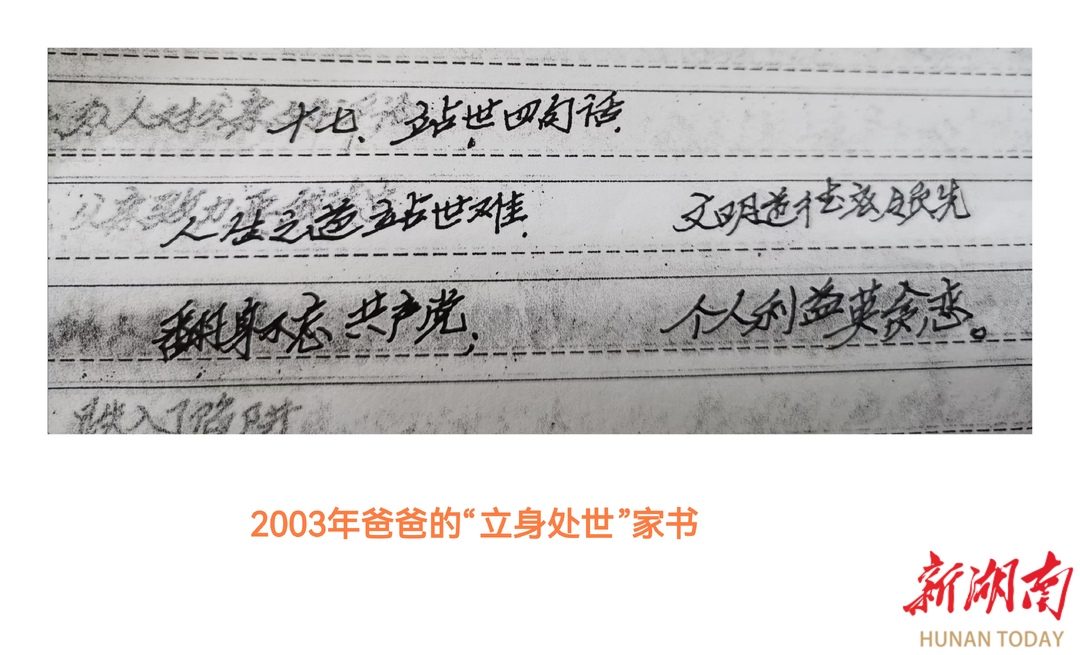 十七、站世四句话.
人生之道站世难. 文明道德
翻身不忘共产党, 个人利益莫贪恋。
跌入了陷阱
2003年爸爸的“立身处世”家书
新湖南
HUNAN TODAY